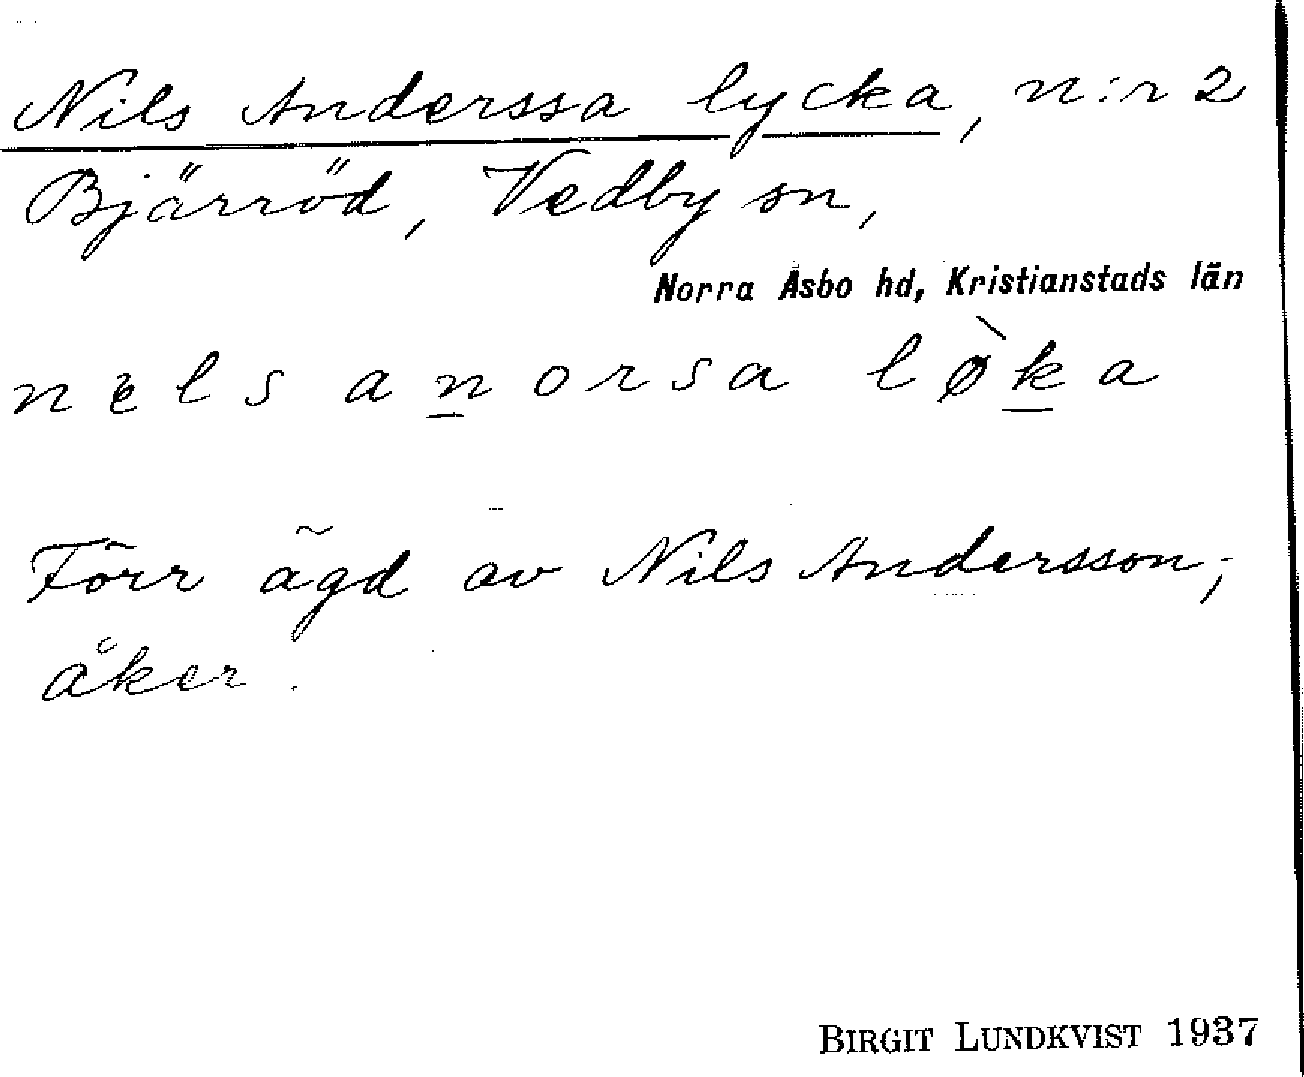 Nils Anderssa lycka, n:r 2
Bjärröd, Vedby sn,
Norra Åsbo hd, Kristianstads län
nels anorsa løka
Förr ägd av Nils Andersson;
åker.
BIRGIT LUNDKVIST 1937